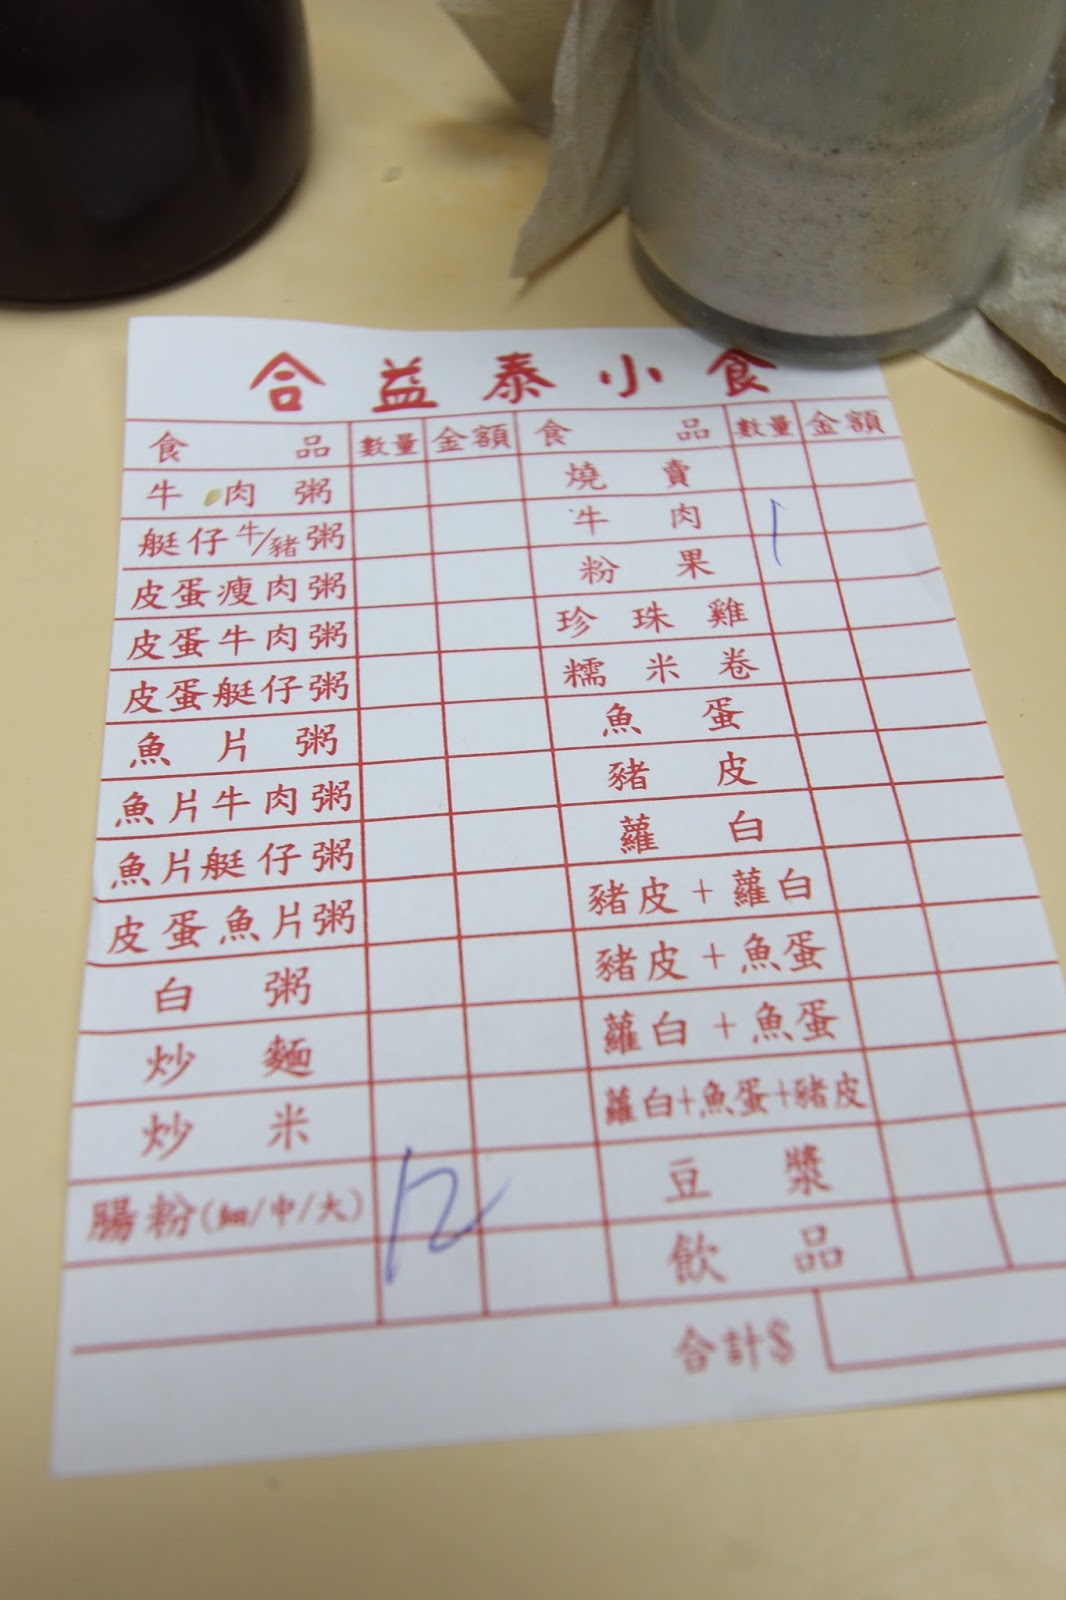 合益泰小食
食品 數量 金額 食品 數量 金額
牛肉粥
艇仔牛/豬粥
皮蛋瘦肉粥
皮蛋牛肉粥
皮蛋艇仔粥
魚片粥
魚片牛肉粥
魚片艇仔粥
皮蛋魚片粥
白粥
炒麵
炒米
腸粉(細/中/大) 12
燒賣
牛肉 1
粉果
珍珠雞
糯米卷
魚蛋
豬皮
蘿白
豬皮+蘿白
豬皮+魚蛋
蘿白+魚蛋
蘿白+魚蛋+豬皮
豆漿
飲品
合計$